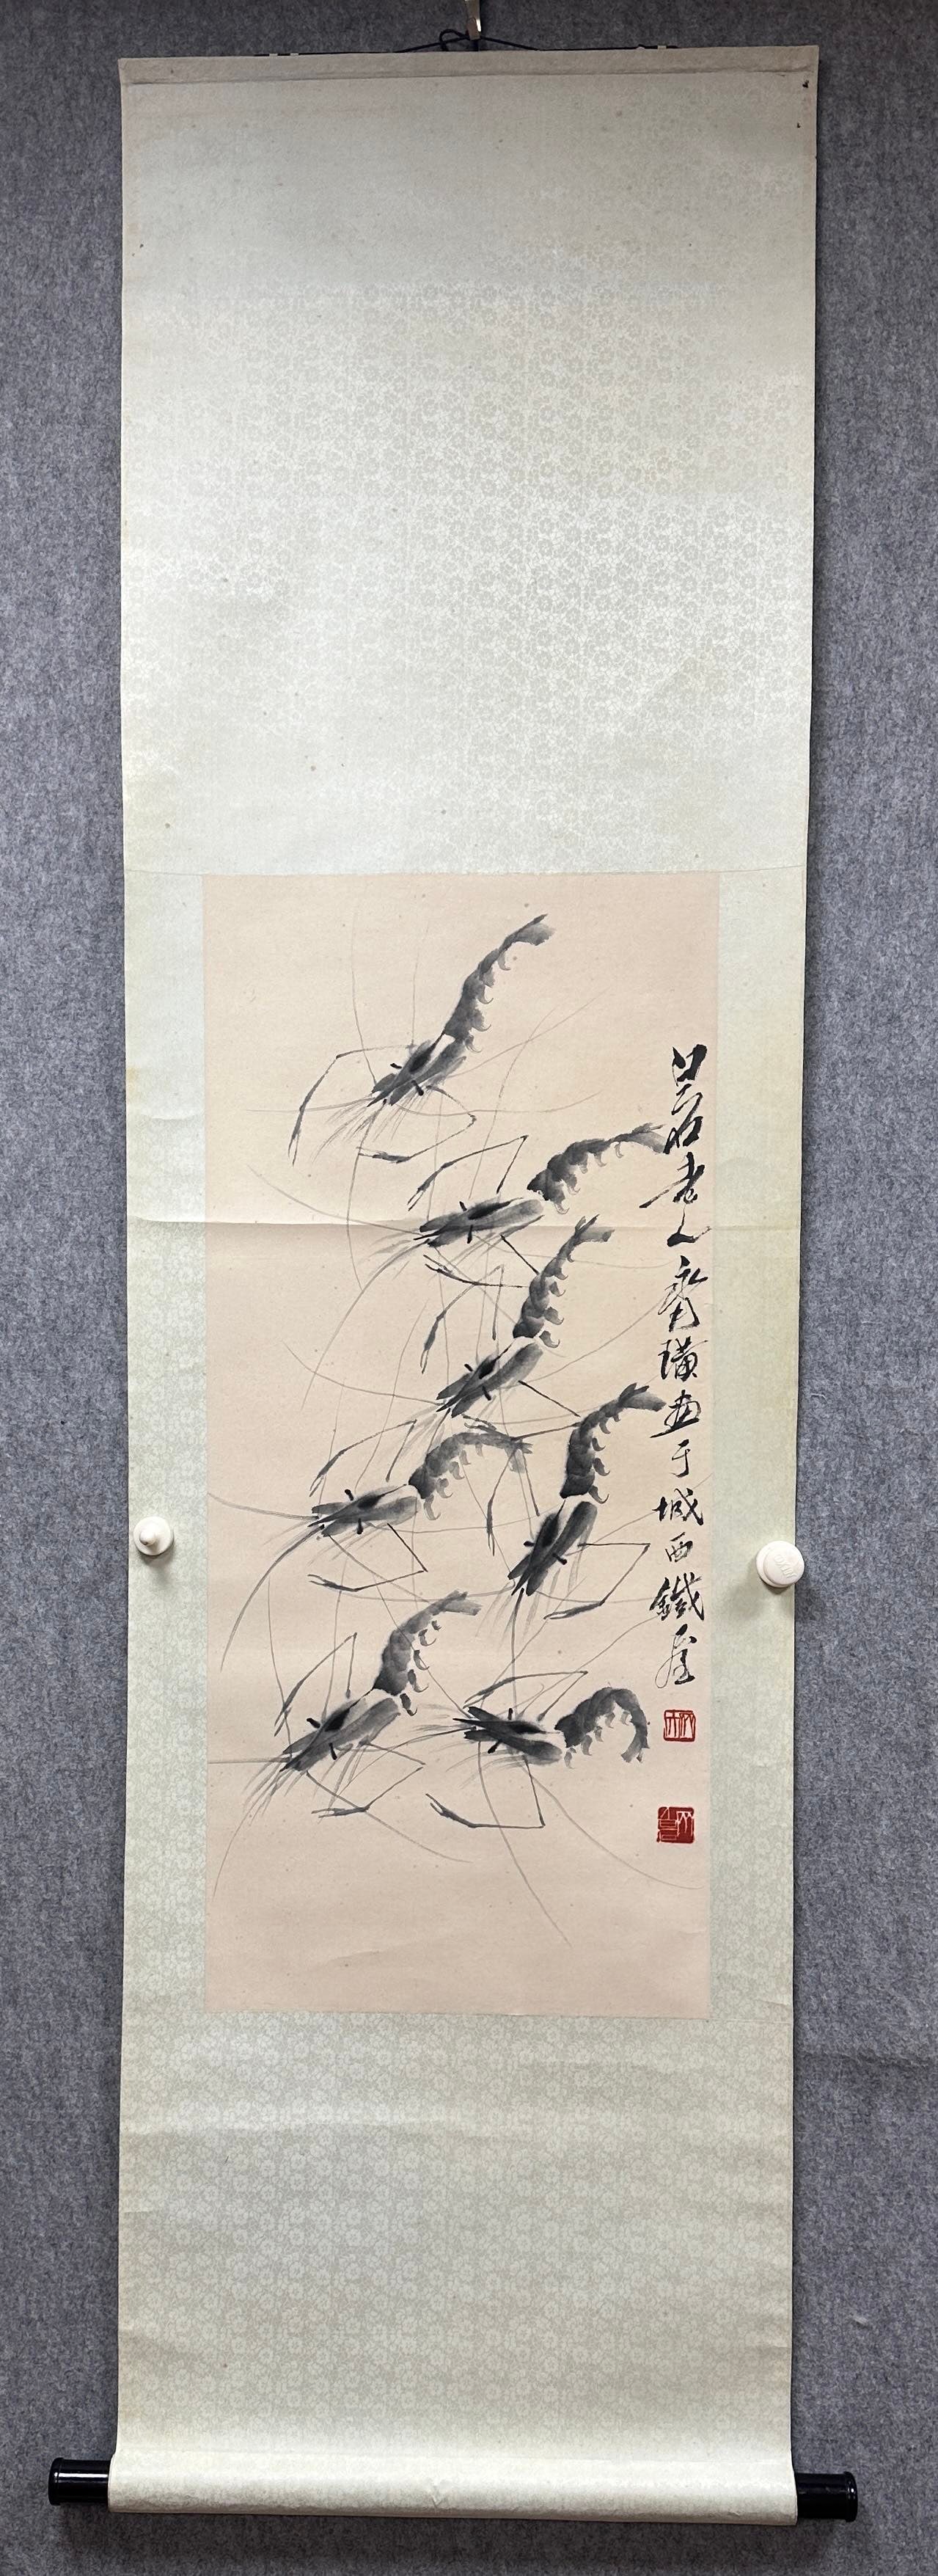 老人齊璜畫于城西鐵屋